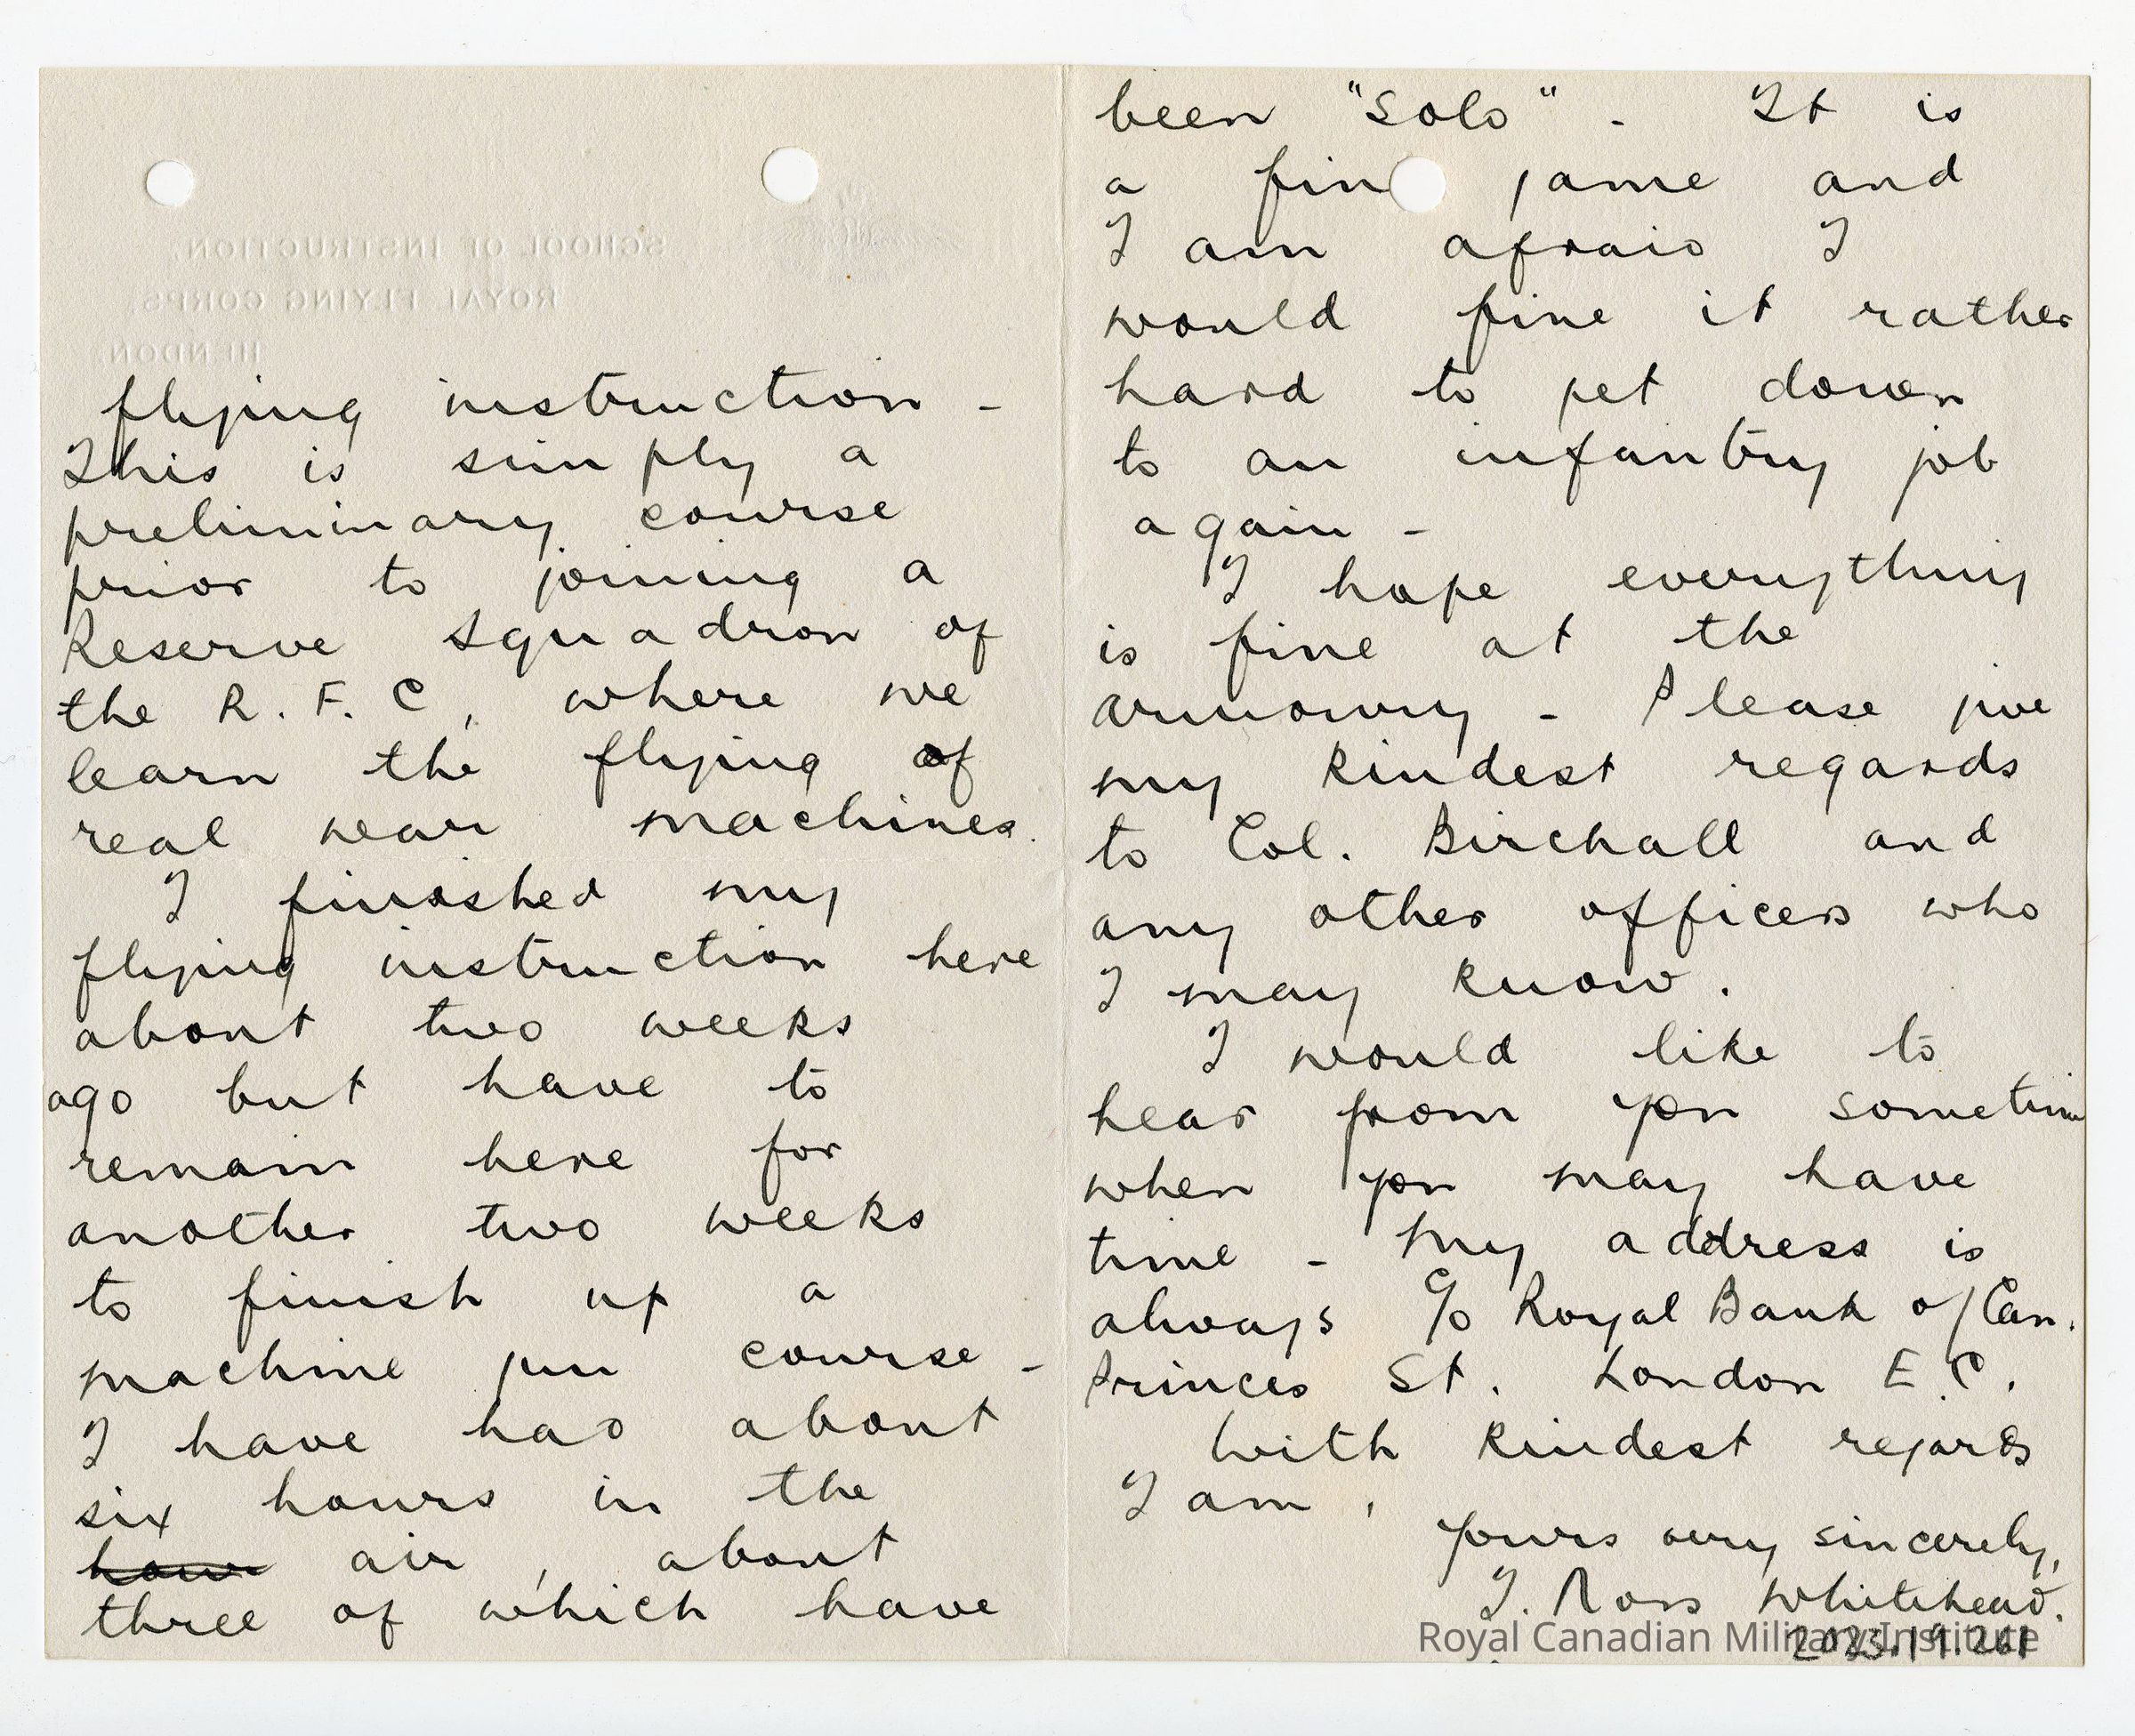 SCHOOL OF INSTRUCTION,
ROYAL FLYING CORPS,
HENDON.
flying instruction -
This is simply a
preliminary course
prior to joining a
Reserve Squadron of
the R. F. C, where we
learn the flying of
real war machines.
I finished my
flying instruction here
about two weeks
ago but have to
remain here for
another two weeks
to finish up a
machine gun course -
I have had about
six hours in the
hour air, about
three of which have
been "Solo" - It is
a fine game and
I am afraid I
would fine it rather
hard to get down
to an infantry job
again -
I hope everything
is fine at the
armoury - Please give
my kindest regards
to Col. Birchall and
any other officers who
I may know.
I would like to
hear from you sometime
when you may have
time - My address is
always c/o Royal Bank of Can.
Princes St. London E.C.
With kindest regards
I am,
Yours very sincerely,
J. Ross Whitehead.
Royal Canadian Military Institute
2023.19.261